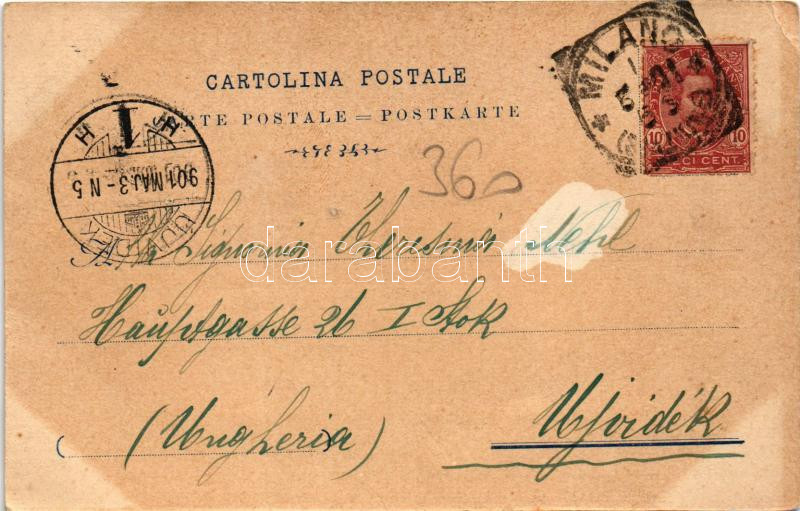 CARTOLINA POSTALE
CARTE POSTALE = POSTKARTE
MILANO
10 10
DIECI CENT.
901 MAJ. 3 - N 5
360
Signorina Teresina
Hauptgasse 26 I Stok
(Ungheria) Ujvidék
darabanth